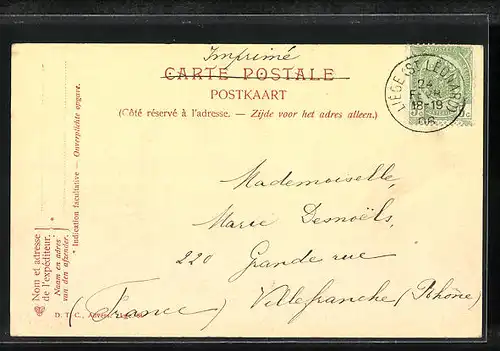 Imprimé
CARTE POSTALE
POSTKAART
(Côté réservé à l'adresse. — Zijde voor het adres alleen.)
LIÉGE (ST LÉONARD)
24
FÉVR
18-19
06
5 c
Mademoiselle,
Marie Desnoëls,
220 Grande rue
Villefranche (Rhône)
(France)
* Indication facultative — Onverplichte opgave.
Nom et adresse
de l'expéditeur. *
Naam en adres
van den afzender.
D. T. C.,